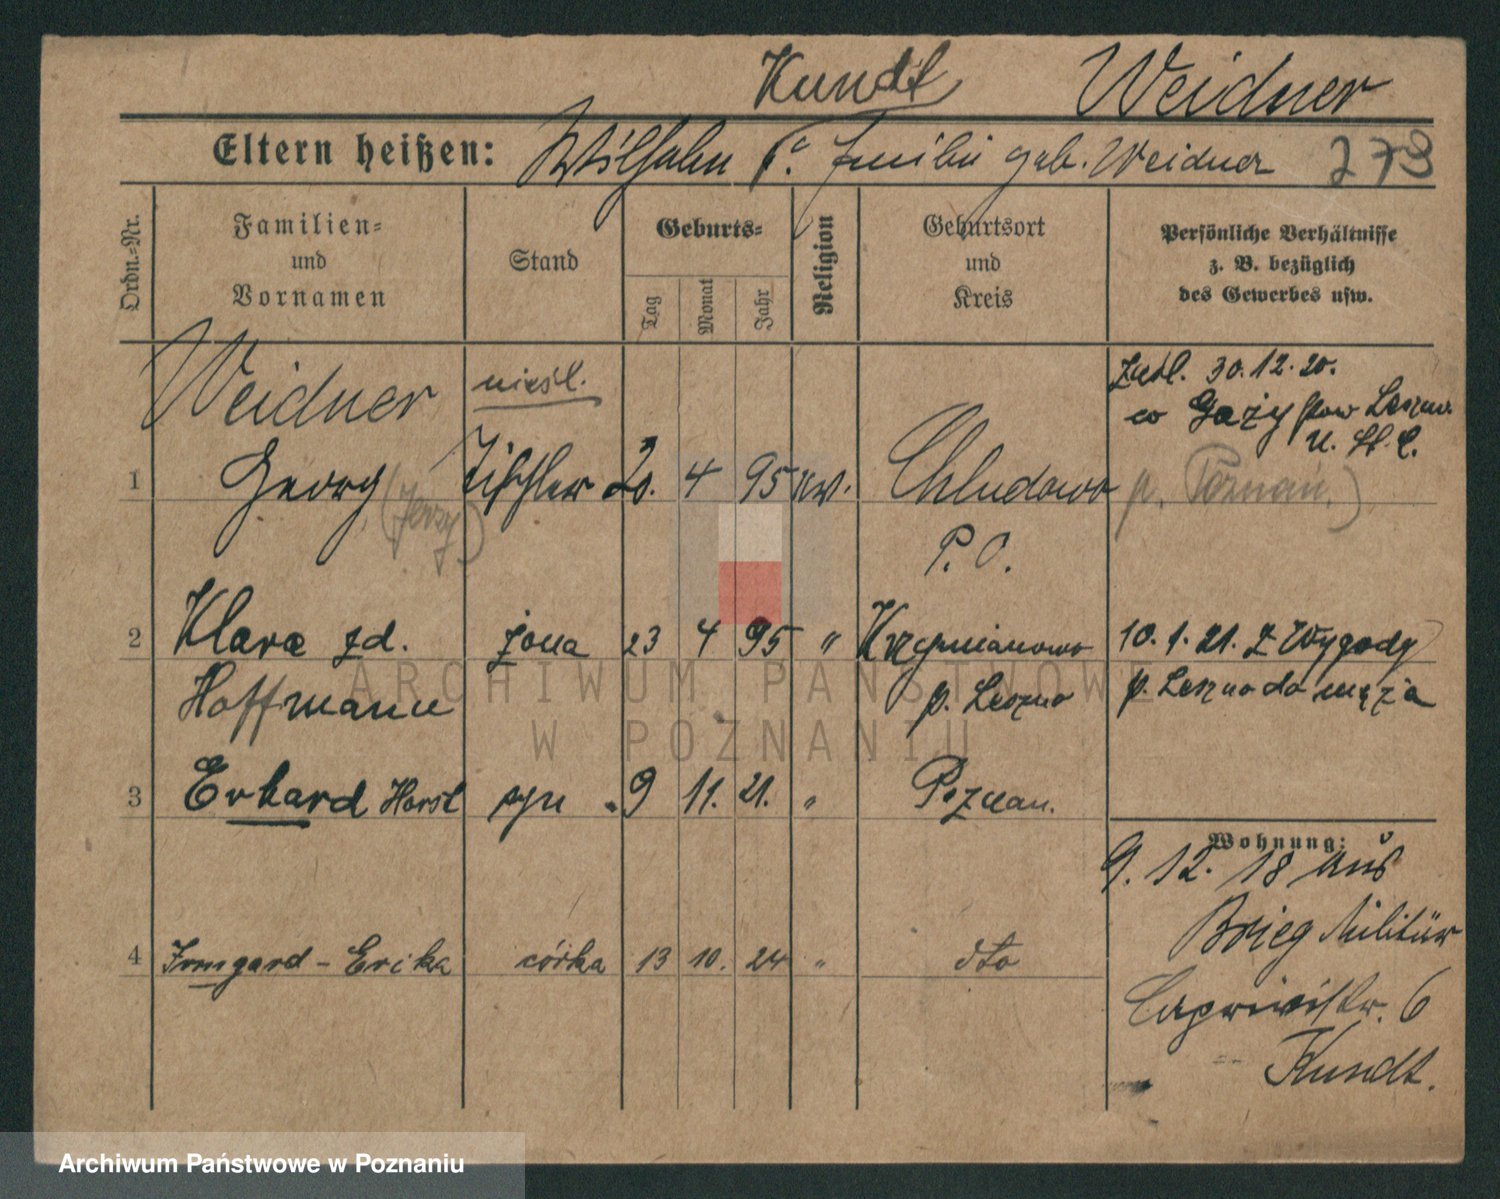 Kundt Weidner
Eltern heißen: Wilhelm geb. Weidner 273
Ordn.-Nr.
Familien-
und
Vornamen
Stand
Geburts-
Tag
Monat
Jahr
Religion
Geburtsort
und
Kreis
Persönliche Verhältnisse
z. B. bezüglich
des Gewerbes usw.
Weidner
1 Georg Tischler 20. 4 95 ew. Chludowo p. Poznań)
(Jerzy)
P. O.
30.12.20.
Leszno
2 Klara zd. żona 23 4 95 " 10. 1. 21. z Wygody
Hoffmann p. Leszno p. Leszno do męża
3 Erhard Horst syn 9 11. 21. " Poznan.
4 Irmgard - Erika córka 13 10. 24 " dto
Wohnung:
9. 12. 18 aus
Brieg Militär
Caprivistr. 6
Kundt.
ARCHIWUM PAŃSTWOWE
W POZNANIU
Archiwum Państwowe w Poznaniu